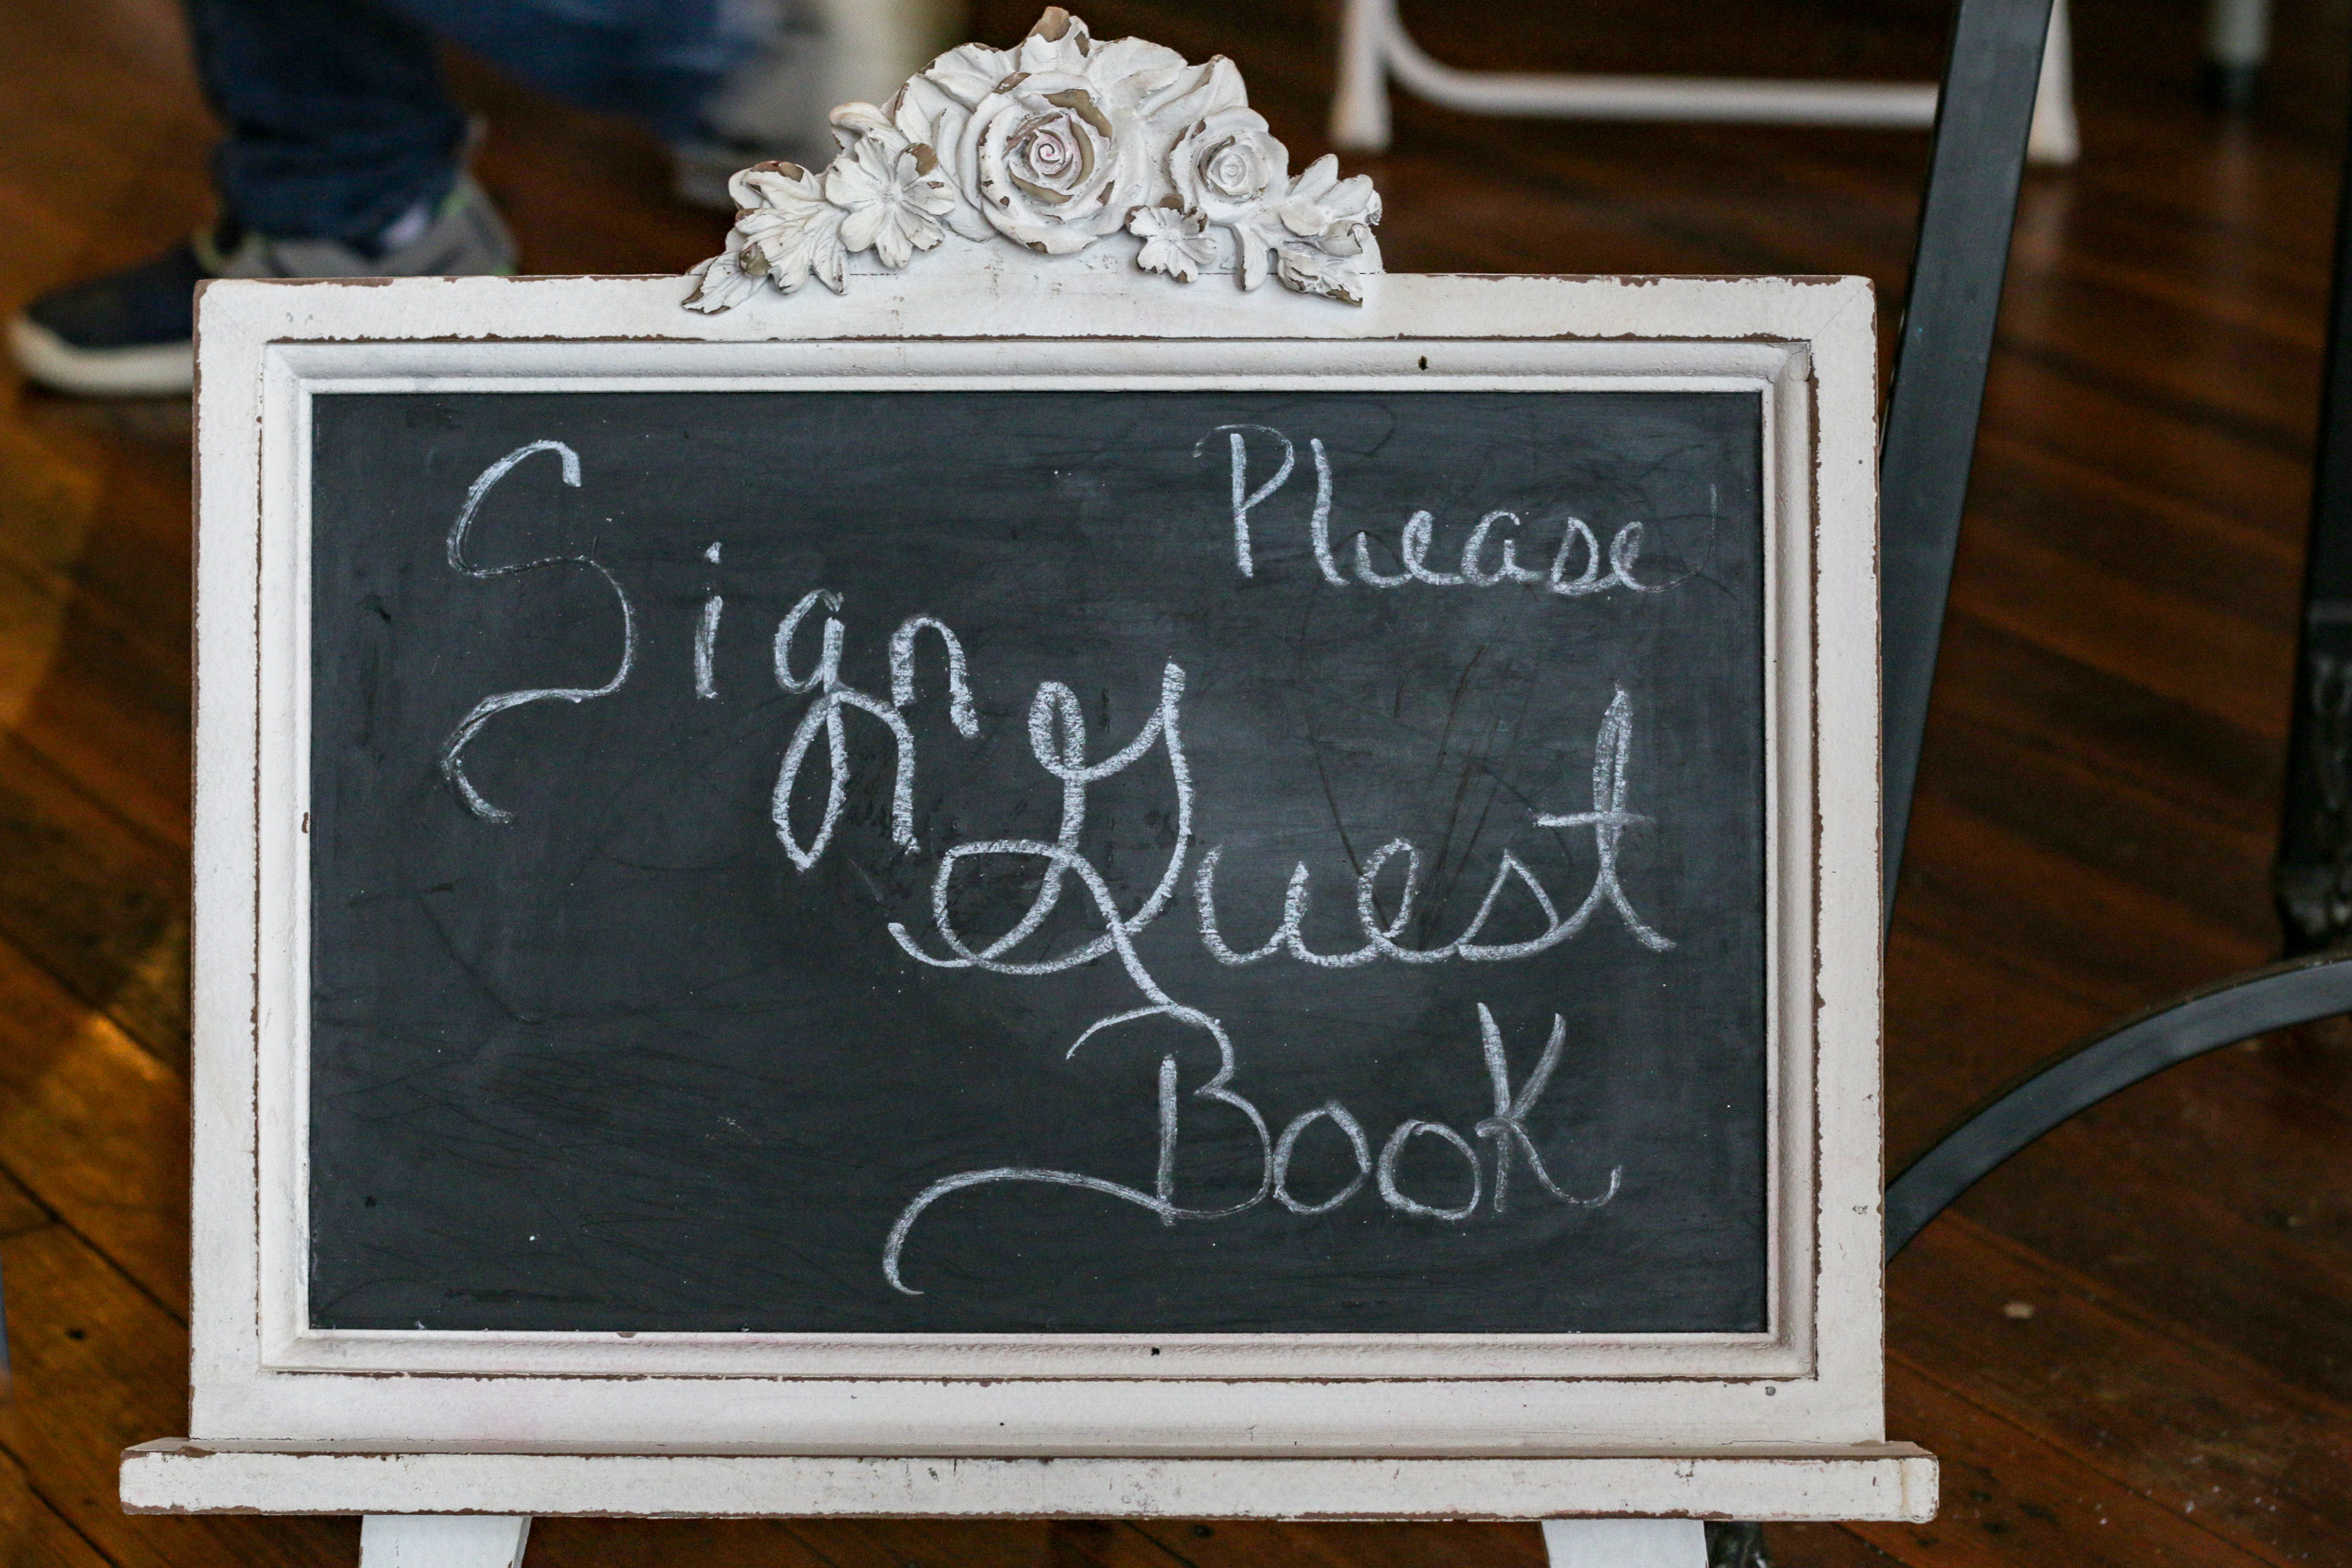 Please
Sign
Guest
Book